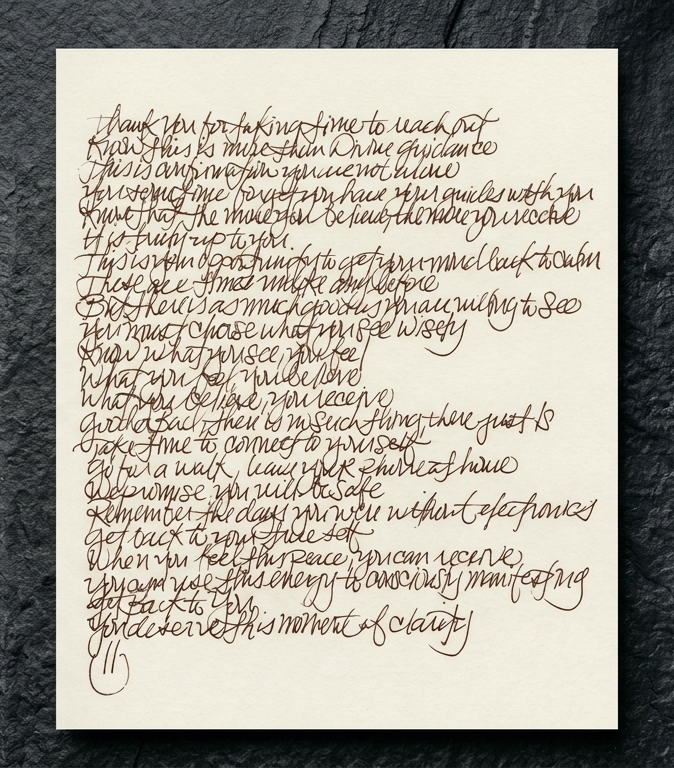 Thank you for taking time to reach out
Know this is more than Divine guidance
This is confirmation you are not alone
you sometime forget you have your guides with you
Know that the more you believe, the more you receive
it is truly up to you.
This is your opportunity to get your mind back to calm
These are times unlike any before
But, there is as much good as you are willing to see
you must chose what you see wisely
Know what you see, you feel
What you feel, you believe
what you believe, you receive
good & bad, there is no such thing, there just is
take time to connect to yourself
go for a walk, leave your phone at home
We promise, you will be safe
Remember the days you were without electronics
get back to your true self
When you feel this peace, you can receive,
you can use this energy to consciously manifesting
get back to You
You deserve this moment of clarity